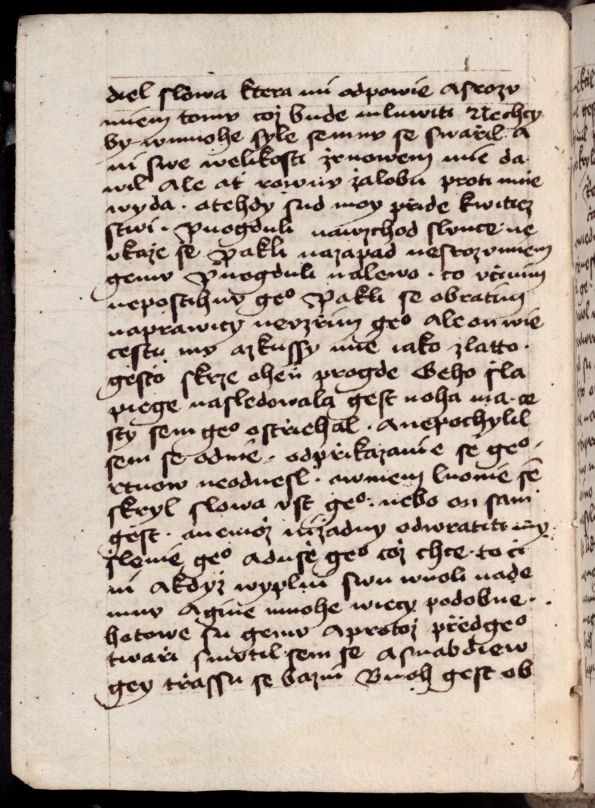 diel slowa ktera mi odpowie A srozu
miem tomu coż bude mluwiti Nechcy
by wmnohe syle semnu se swařil. a
ni swe welikosti żrnowem mie da
wil Ale ať rowny żalobu proti mnie
wyda. atehdy sud moy přide kwitiez
stwi. Puogduli nawzchod slunce. ne
ukaże se Pakli nazapad nesrozumiem
gemu Puogduli nalewo. to vczinim
nepostihnu geº Pakli se obratim
naprawicy nevzřim geº Aleon wie
cestu mu azkussy mie iako zlatto.
gesto skrze oheň progde Geho sla
piege nasledowala gest noha ma. ce
sty sem geº ostřiehal. Anepochylil
sem se odnie. odpřikazanie se geº.
rtuow neodnesl. awmem luonie se
skryl slowa vst geº. nebo on sam
gest. anemoż niżadny odwratiti my
slenie geº aduse geº coż chce. to či
ni Akdyż wyplni swu wuoli nade
mnu Agine mnohe wiecy podobne.
hotowe su gemu Aprotoż předgeº
twaři smutil sem se Asnabdiew
gey třassu se bazni Buoh gest ob